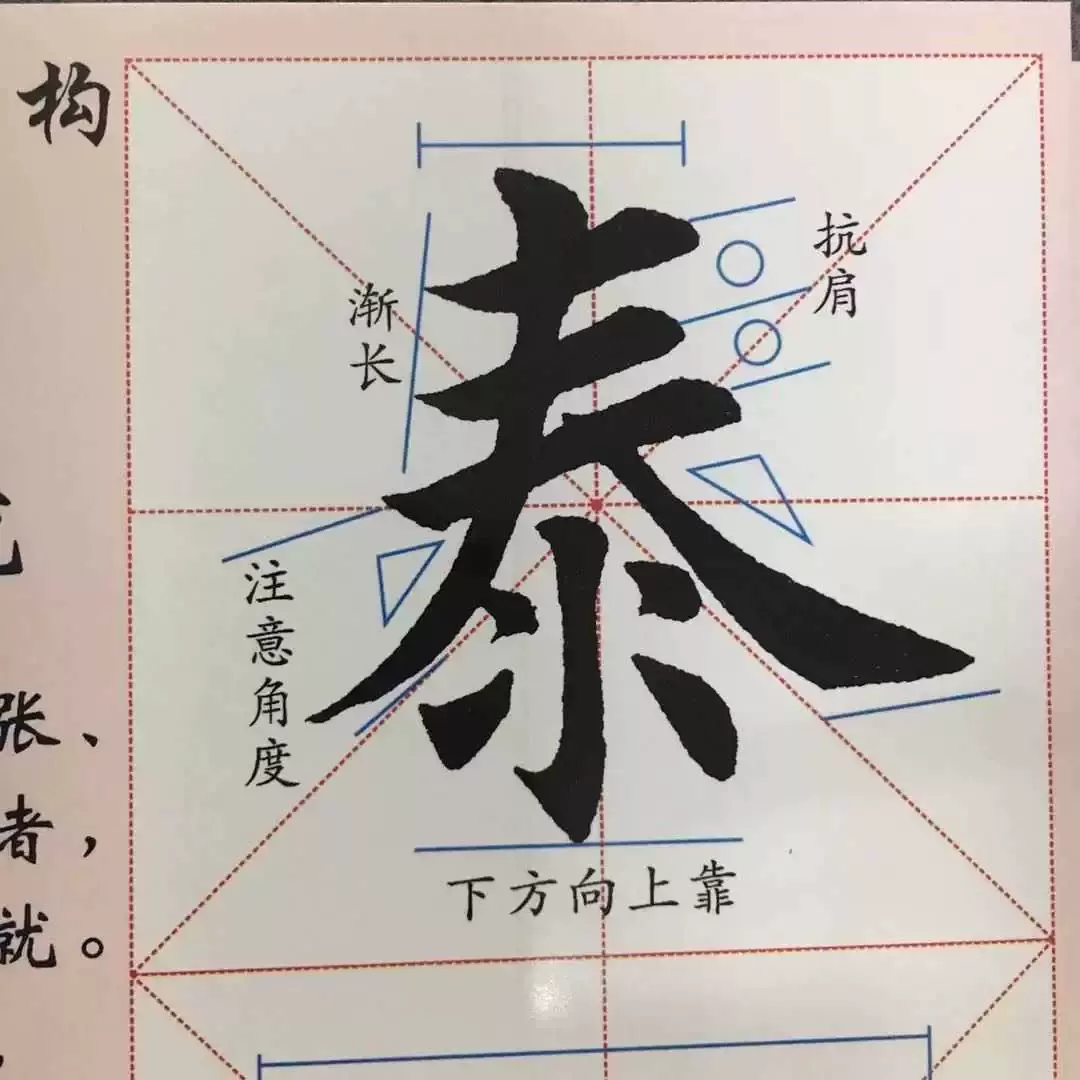 构
泰
抗肩
渐长
注意角度
下方向上靠
张、
者，
就。